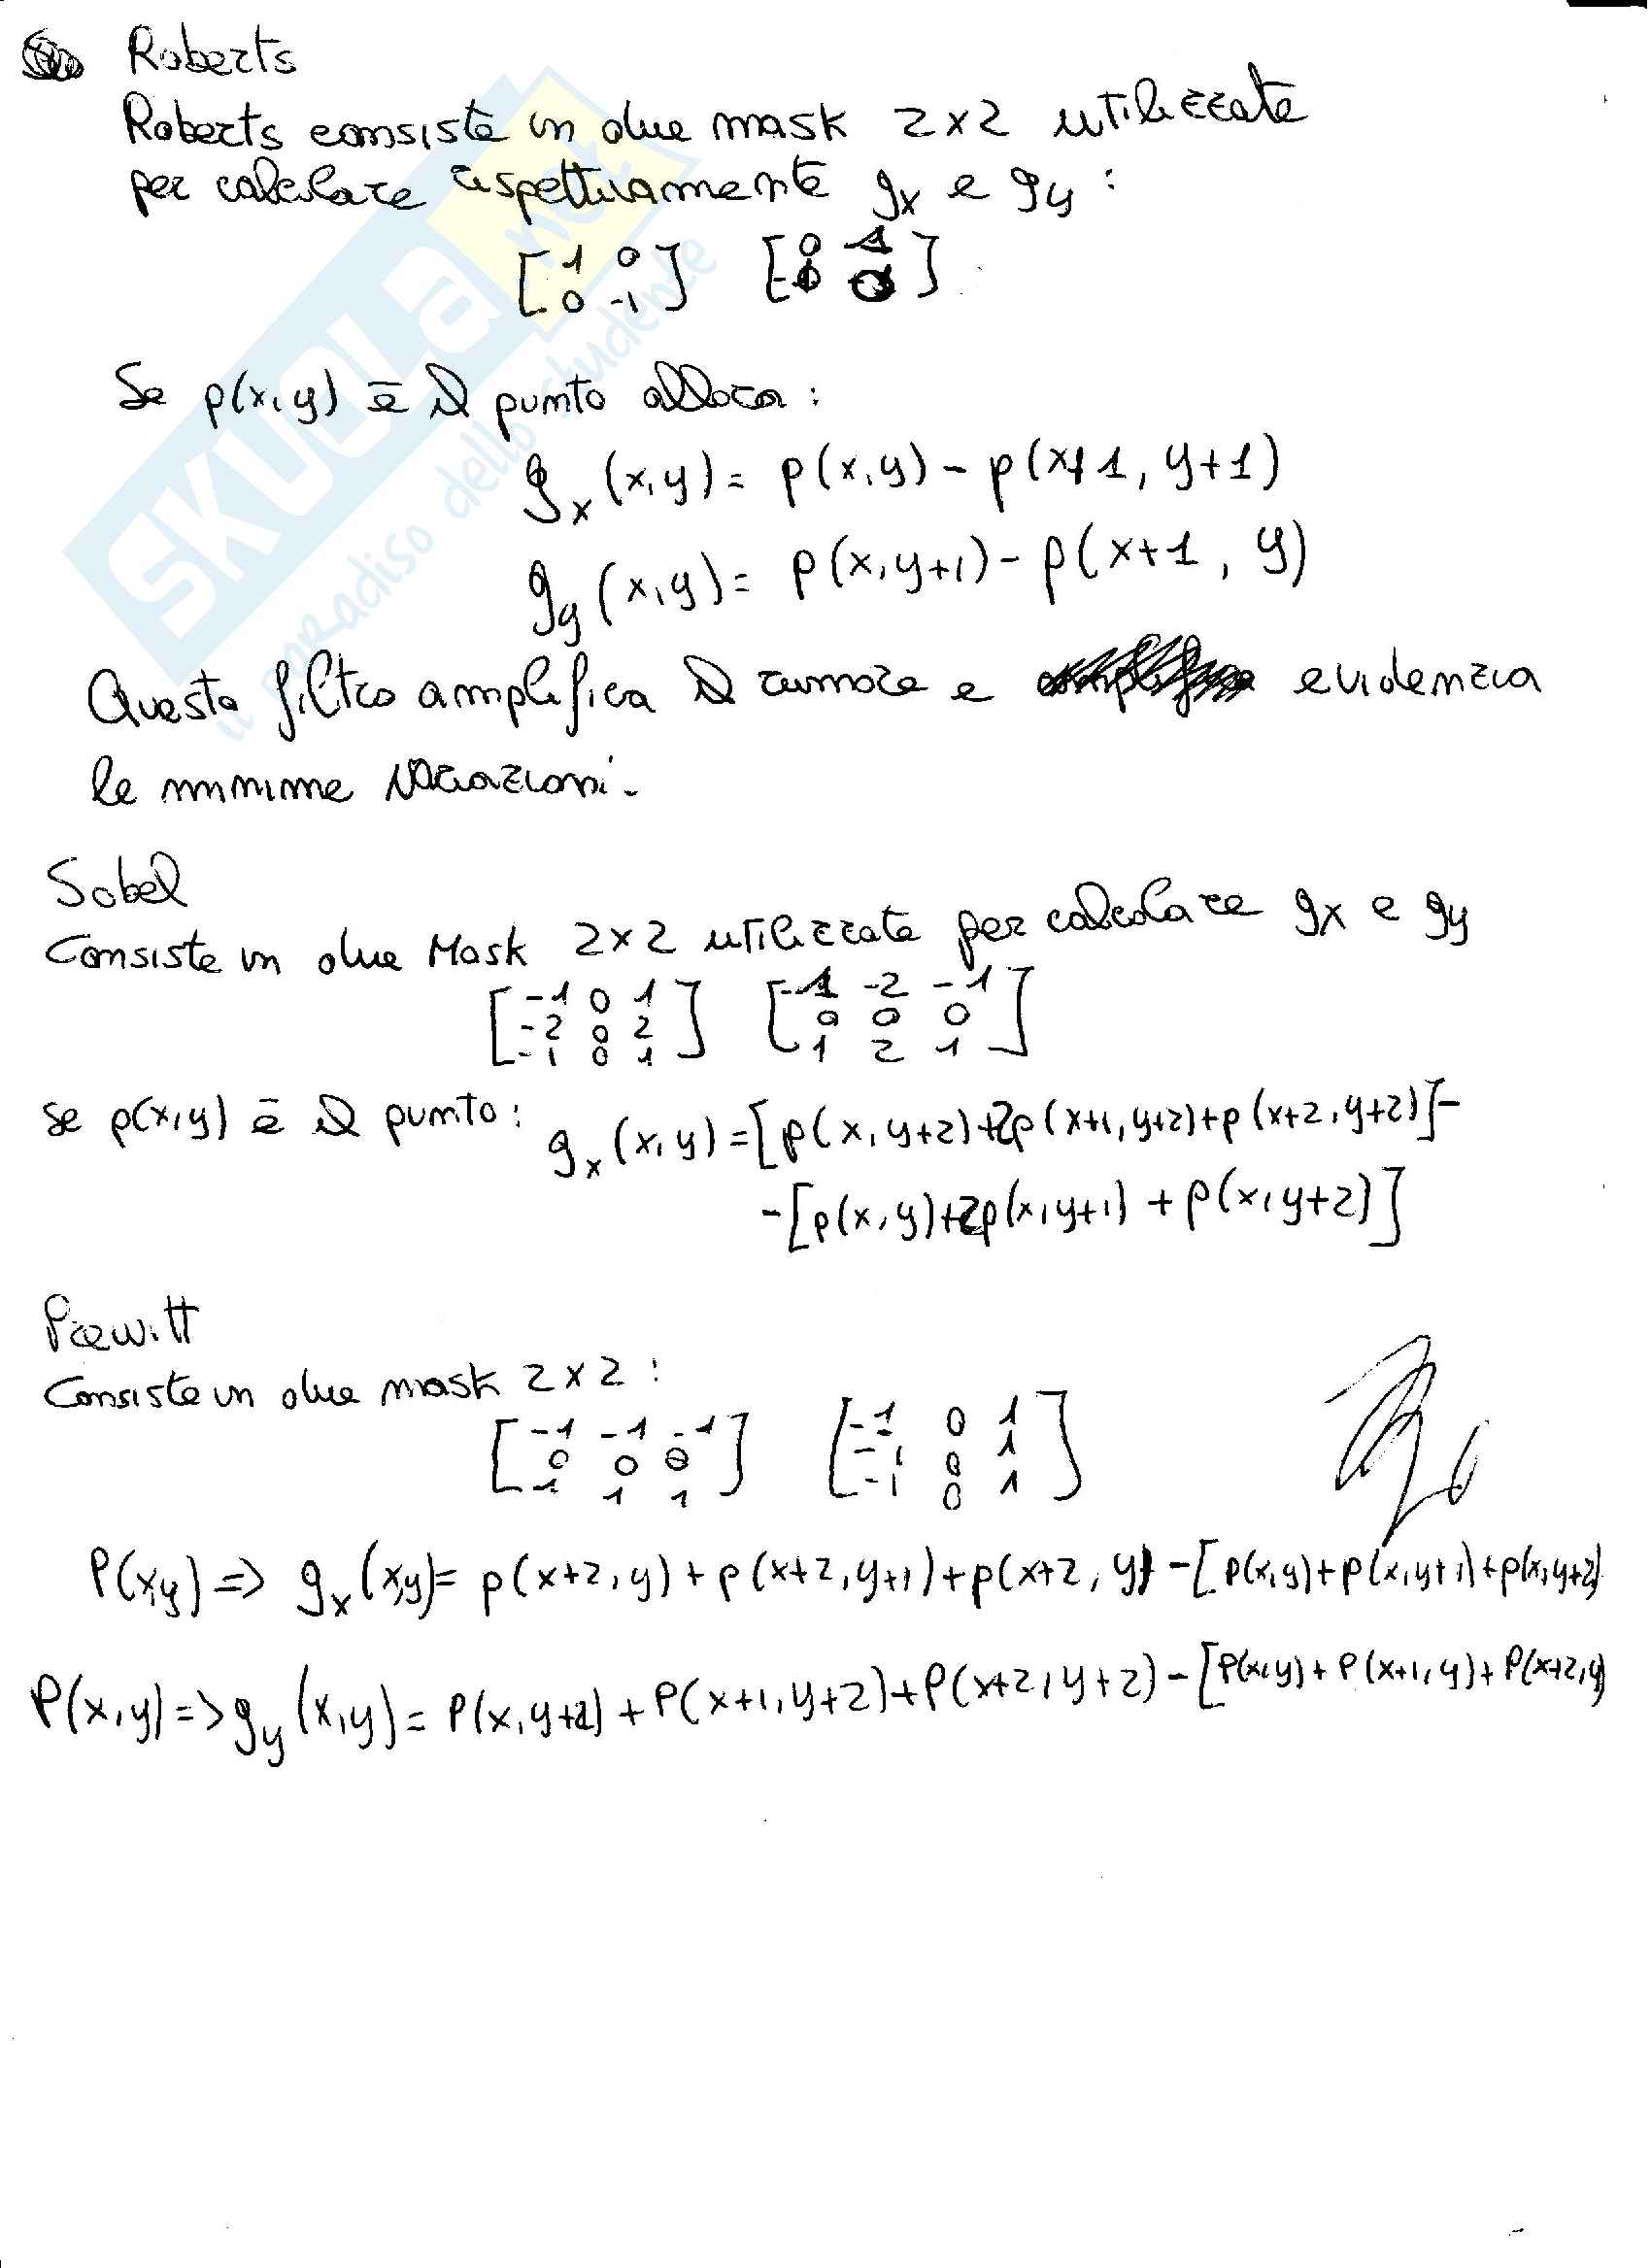 Roberts
Roberts consiste in due mask 2x2 utilizzate
per calcolare rispettivamente gx e gy :
[ 1 0 ] [ 0 1 ]
[ 0 -1 ] [ -1 0 ]
Se p(x,y) è il punto allora :
gx (x,y) = p(x,y) - p(x+1, y+1)
gy (x,y) = p(x,y+1) - p(x+1, y)
Questo filtro amplifica il rumore e evidenzia
le minime variazioni.
Sobel
Consiste in due Mask 2x2 utilizzate per calcolare gx e gy
[ -1 0 1 ] [ -1 -2 -1 ]
[ -2 0 2 ] [ 0 0 0 ]
[ -1 0 1 ] [ 1 2 1 ]
se p(x,y) è il punto : gx (x,y) = [p(x,y+2)+2p(x+1,y+2)+p(x+2,y+2)] -
- [p(x,y)+2p(x,y+1) + p(x,y+2)]
Prewitt
Consiste in due mask 2x2 :
[ -1 -1 -1 ] [ -1 0 1 ]
[ 0 0 0 ] [ -1 0 1 ]
[ 1 1 1 ] [ -1 0 1 ]
P(x,y) => gx (x,y) = p(x+2,y) + p(x+2,y+1) + p(x+2,y) - [p(x,y)+p(x,y+1)+p(x,y+2)
P(x,y) => gy (x,y) = P(x,y+2) + P(x+1,y+2) + P(x+2,y+2) - [P(x,y) + P(x+1,y) + P(x+2,y)
SKUOLA.net
il paradiso dello studente